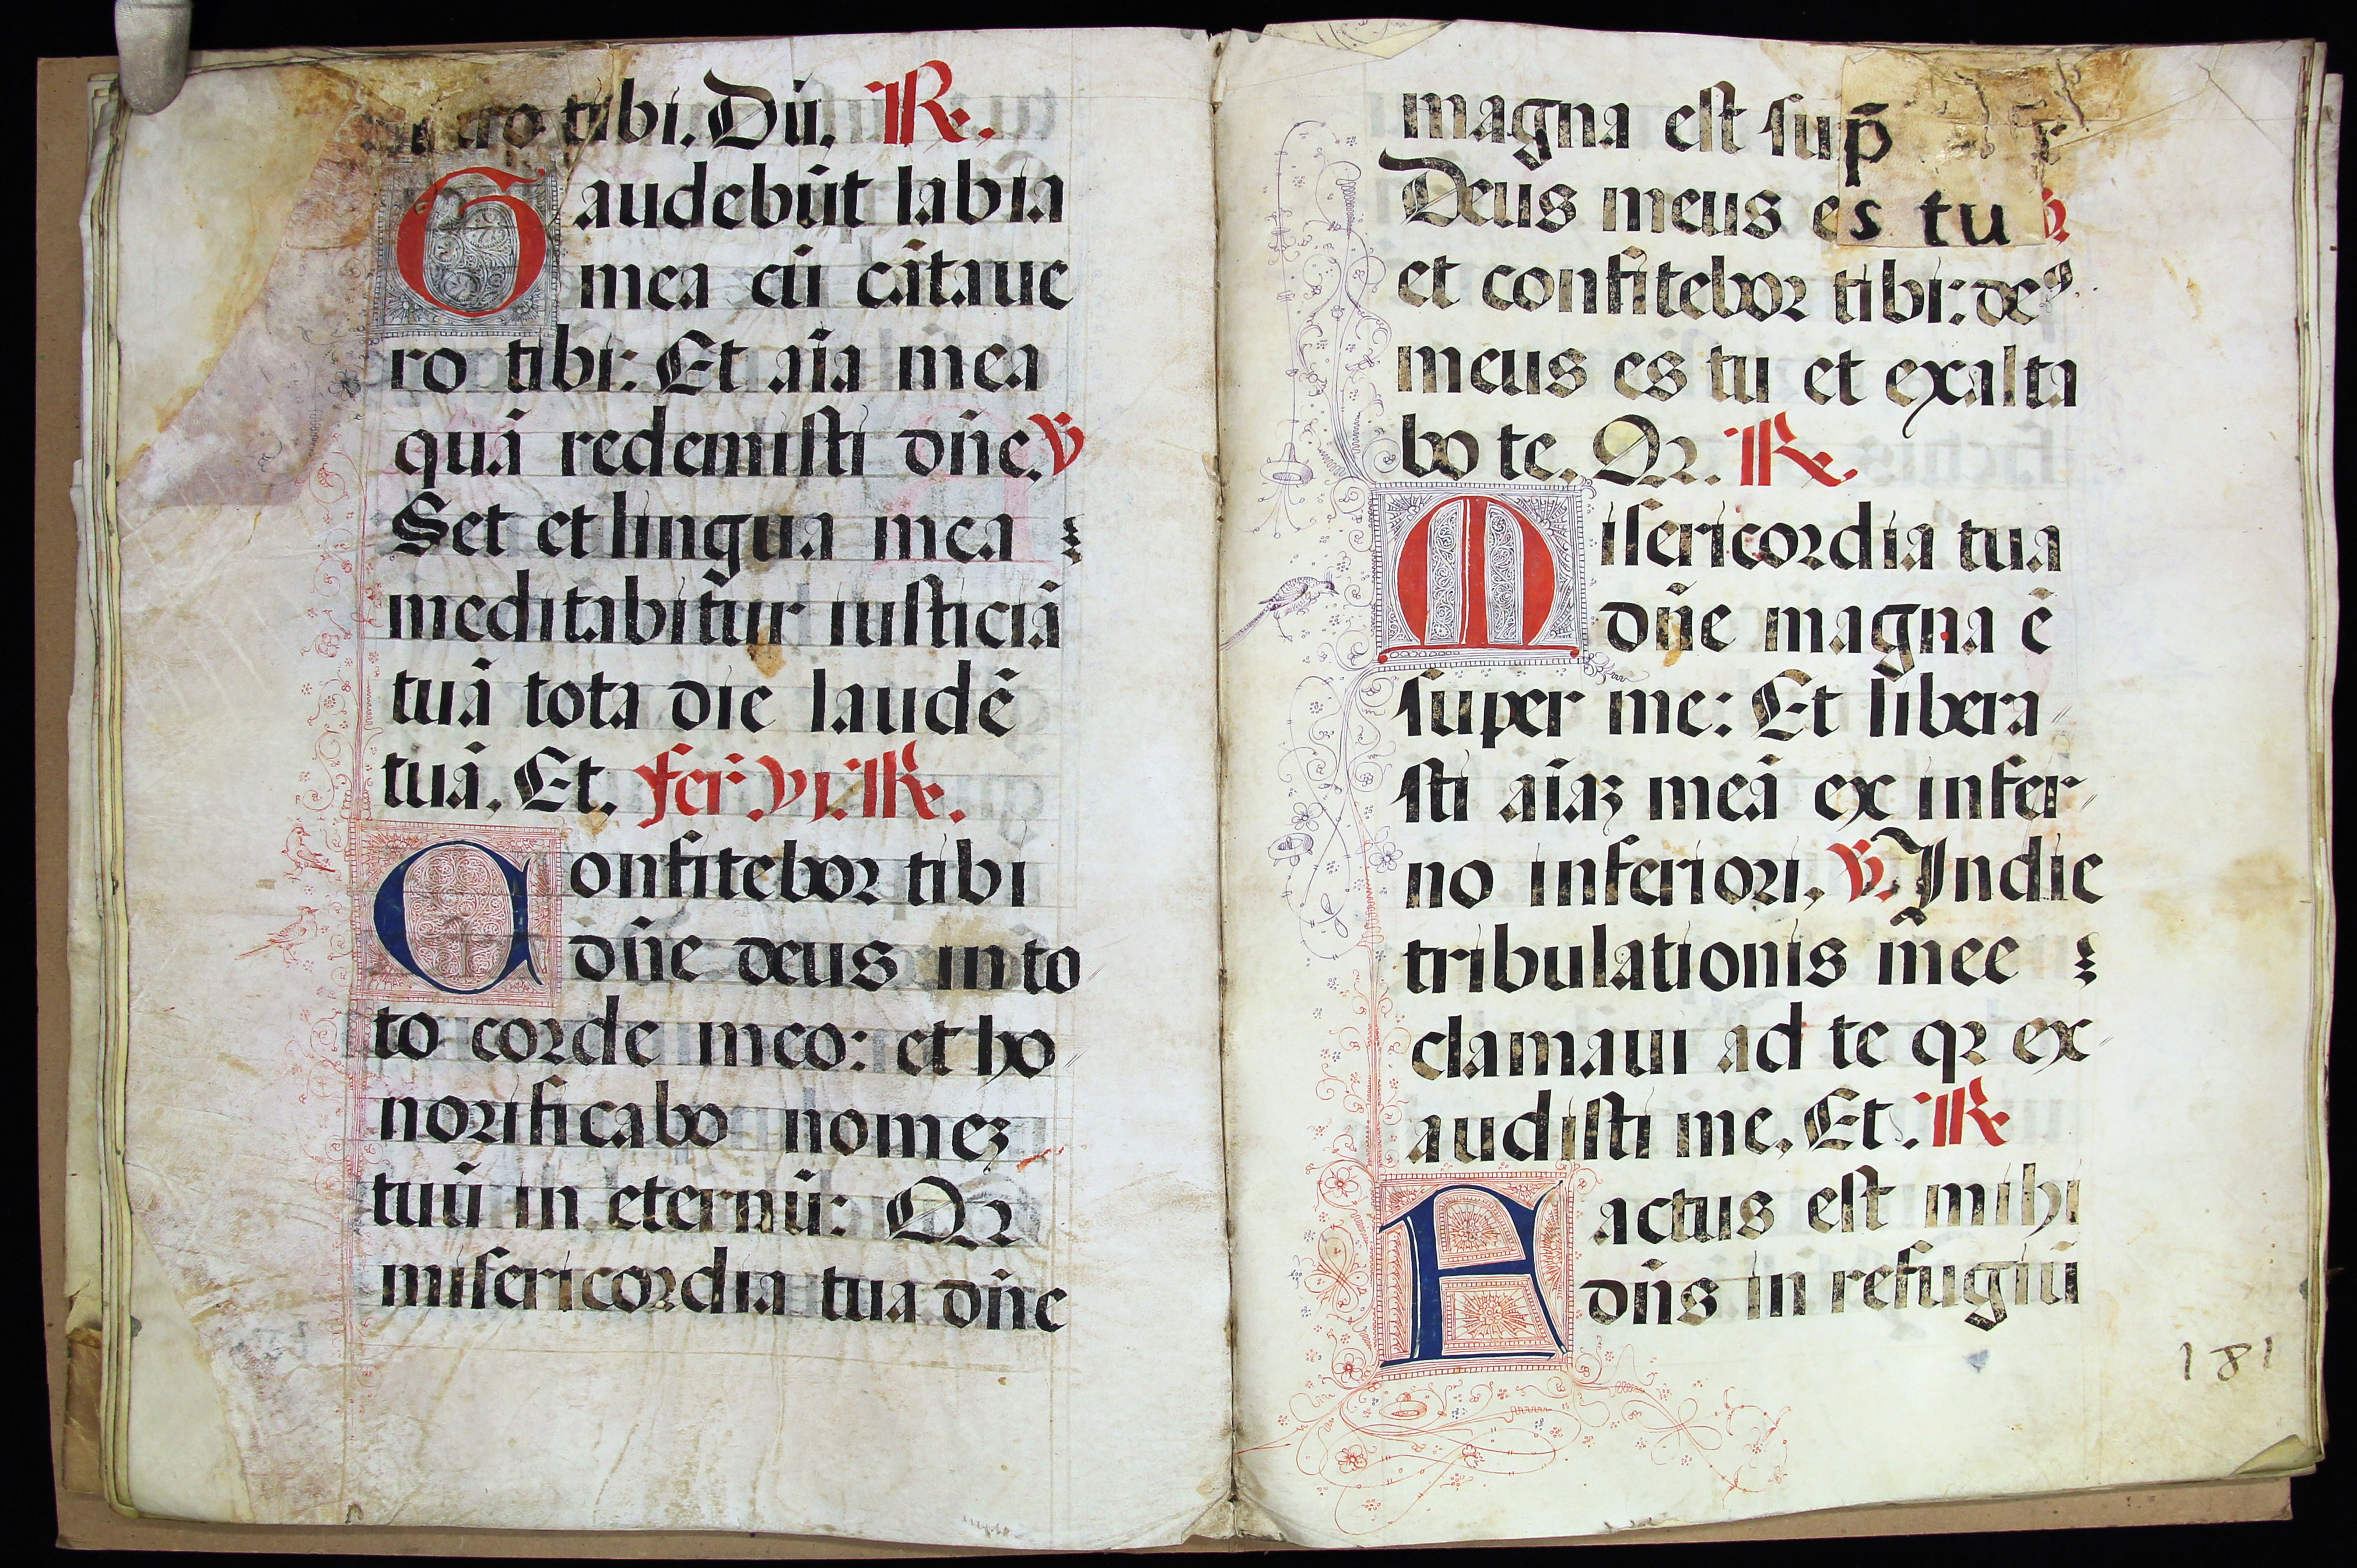 ro tibi. Dū. ℟.
Gaudebūt labia
mea cū cātaue
ro tibi: Et aīa mea
quā redemisti dn̄e. ℣
Set et lingua mea
meditabit̄ur iusticiā
tuā tota die laudē
tuā. Et. fer̄ vi. ℟.
Confitebor tibi
dn̄e deus in to
to corde meo: et ho
norificabo nomeȝ
tuū in eternū: Qꝛ
misericordia tua dn̄e
magna est sup̄
Deus meus es tu ℣.
et confitebor tibi: deꝰ
meus es tu et exalta
bo te. Qꝛ. ℟.
Misericordia tua
dn̄e magna ē
super me: Et libera
sti aīaȝ meā ex infer
no inferiori, ℣. In die
tribulationis mee
clamaui ad te qꝛ ex
audisti me, Et. ℟
Factus est mihi
dn̄s in refugiū
181